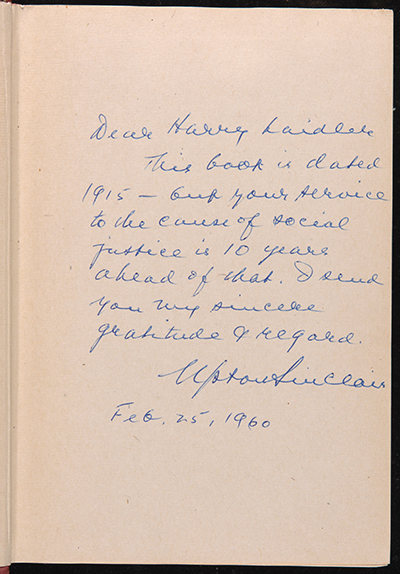 Dear Harry Laidler
This book is dated
1915 — but your service
to the cause of social
justice is 10 years
ahead of that. I send
you my sincere
gratitude & regard.
Upton Sinclair
Feb. 25, 1960